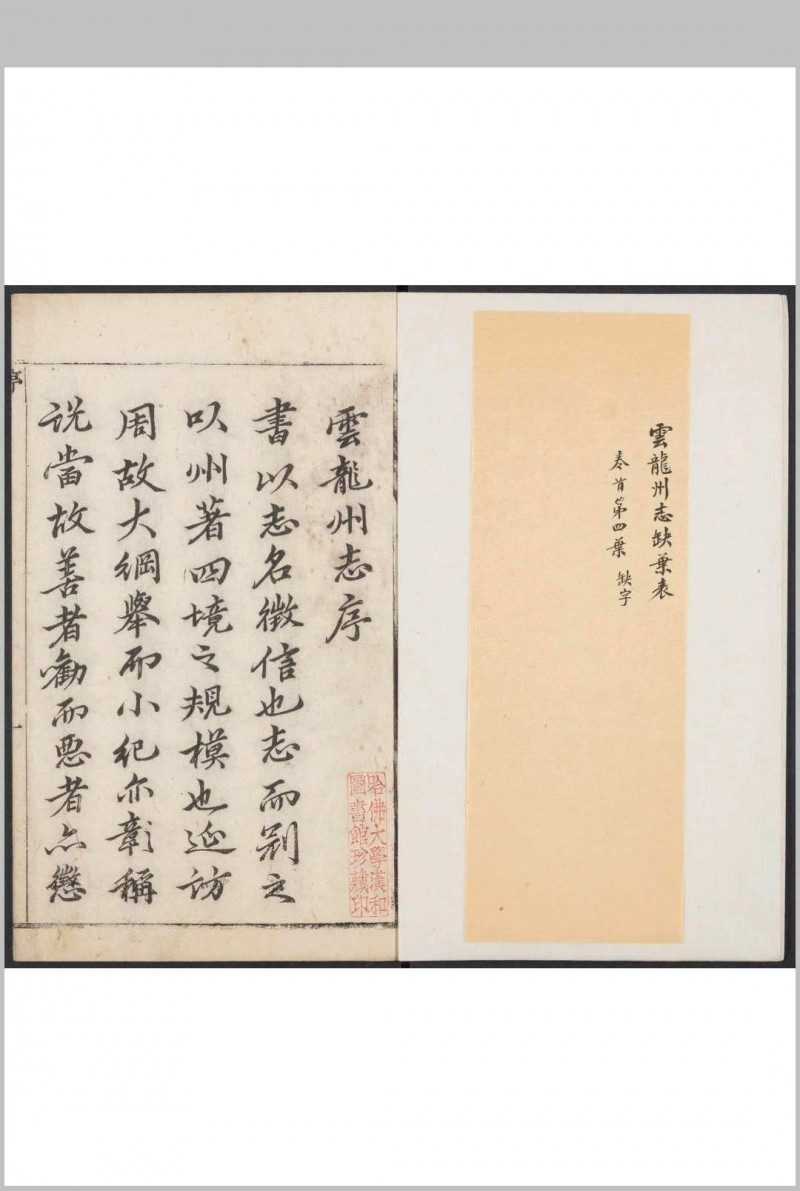 雲龍州志缺葉表
卷首第四葉 缺字
雲龍州志序
書以志名徵信也志而别之
以州著四境之規模也延訪
周故大綱舉而小紀亦彰稱
说當故善者勸而悪者亦懲
哈佛大學漢和
圖書館珍藏印
序
一